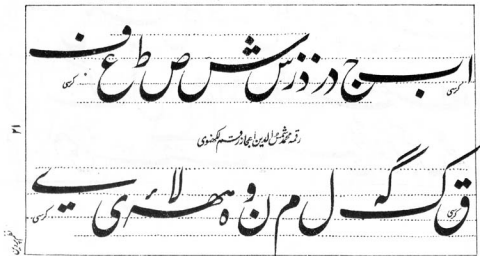 ا ب ج د ر ز ژ س ش ص ط ع ف
کرسی کرسی
رقمہ محمد شمس الدین اعجاز رقم لکھنوی
ق ک گ ل م ن و ہ ھ لا ئ ی ے
کرسی کرسی
۲۱